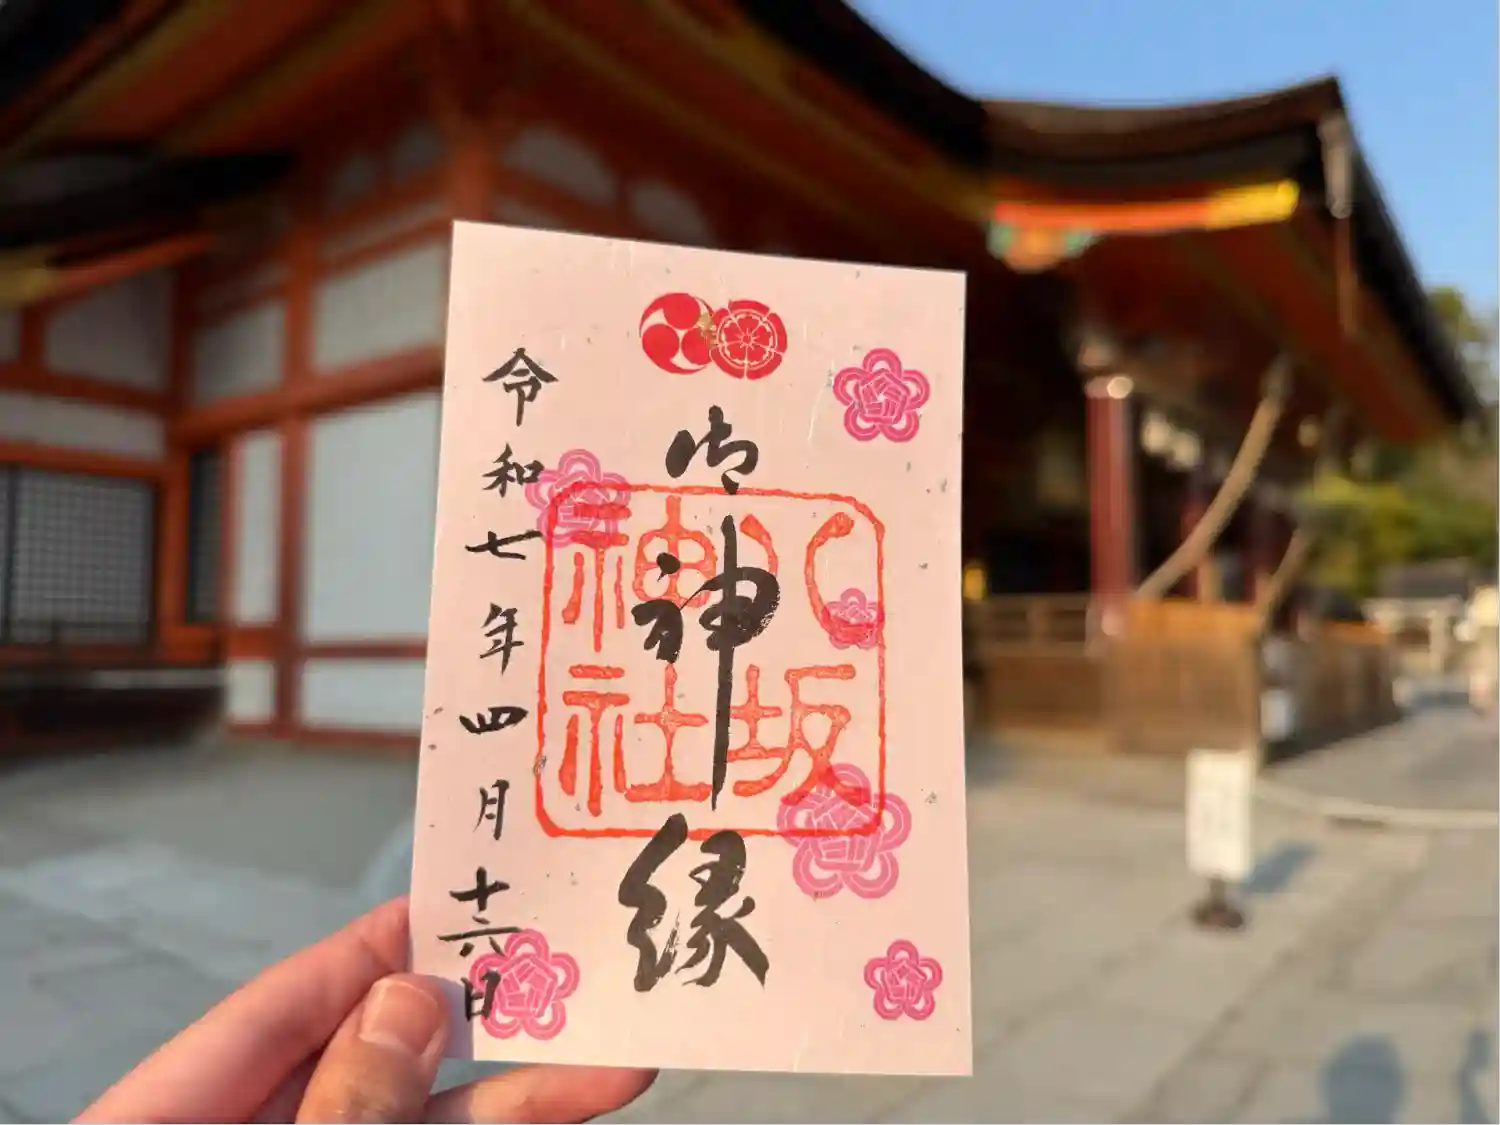 御神縁
八坂神社
令和七年四月十六日